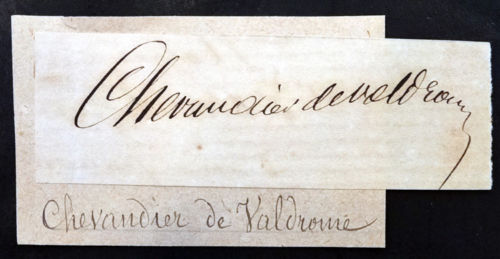 Chevandier de valdrome
Chevandier de Valdrome